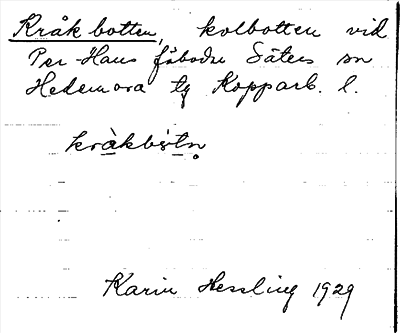 Kråkbotten, kolbotten vid
Per-Hans fäbodar Säters sn
Hedemora tg Kopparb. l.
kràkbòtn̥
Karin Hessling 1929